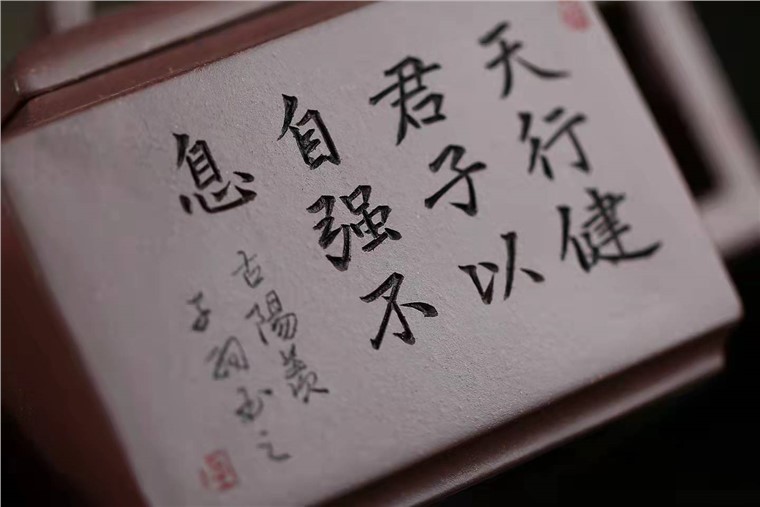 天行健
君子以
自强不
息
古陽羨